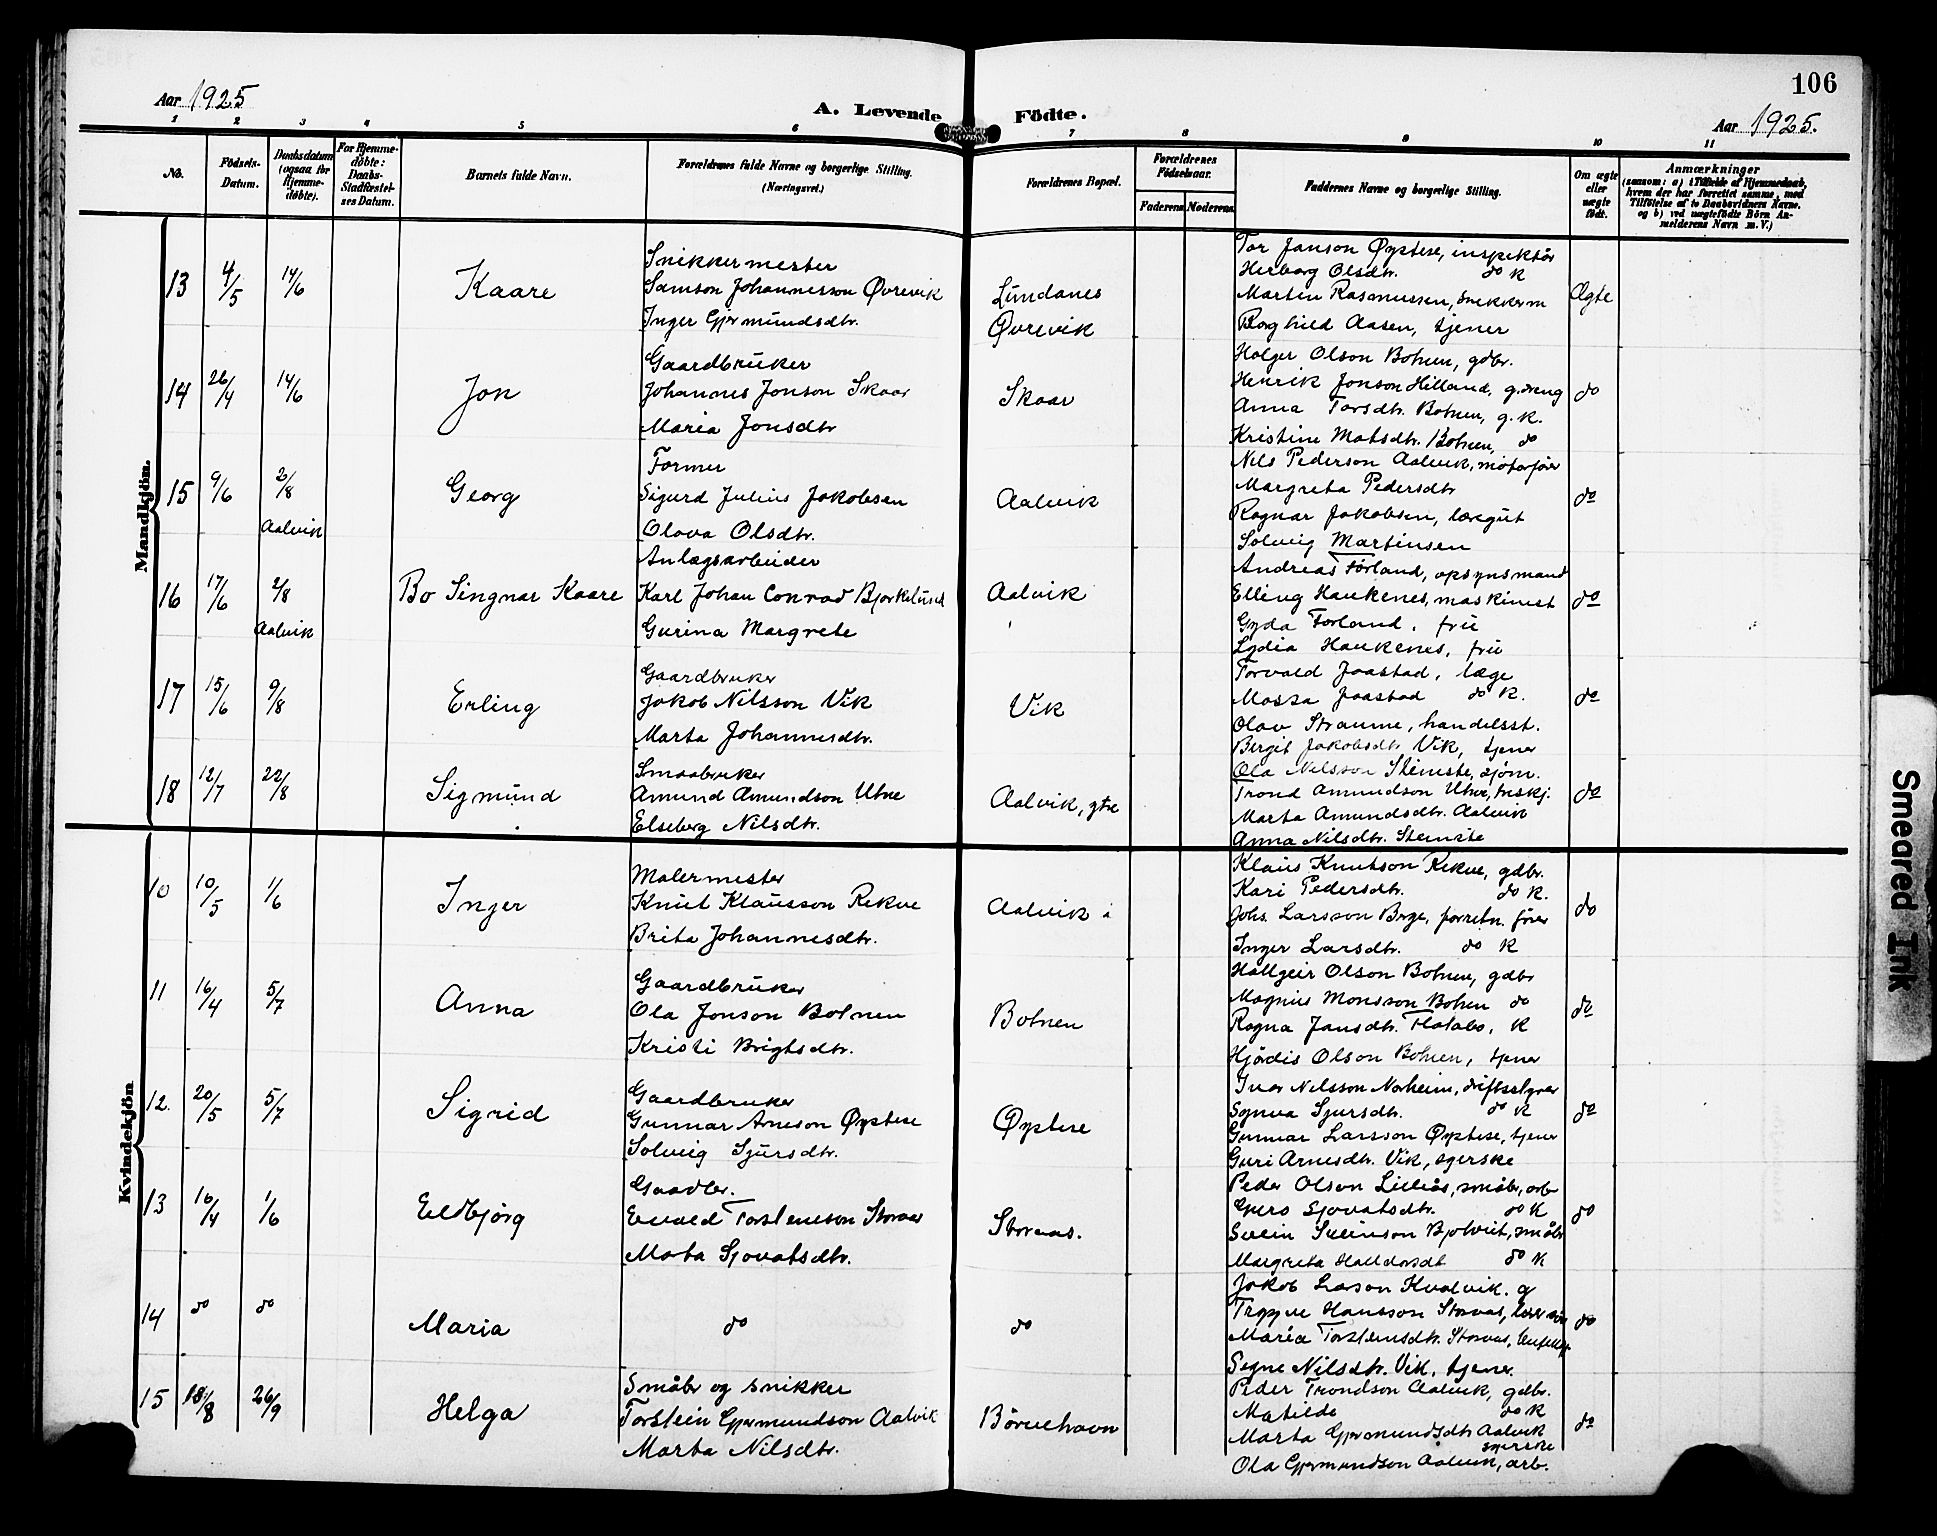 106
Aar 1925
A. Levende Födte.
Aar 1925.
1 2 3 4 5 6 7 8 9 10 11
No.
Födsels-Datum.
Daabsdatum (ogsaa for Hjemme-döbte).
For Hjemme-döbte: Daabs-Stadfæstel-ses Datum.
Barnets fulde Navn.
Forældrenes fulde Navne og borgerlige Stilling. (Næringsvei.)
Forældrenes Bopæl.
Forældrenes Födselsaar.
Faderens Moderens
Faddernes Navne og borgerlige Stilling.
Om ægte eller uægte födt.
Anmærkninger
(saasom: a) i Tilfælde af Hjemmedaab, hvem der har forrettet samme, med Tilföielse af to Daabsvidners Navne, og b) ved uægtefödte Börn An-melderens Navn m. V.)
Mandkjön.
13 4/5 14/6 Kaare
Snikkermester
Samson Johannesson Øvrevik
Inger Gjermundsdtr.
Lundanes
Øvrevik
Tor Janson Øystese, inspektör
Herborg Olsdtr. do K
Martin Rasmussen, snekkerm
Borghild Aasen, tjener
Ægte
14 26/4 14/6 Jon
Gaardbruker
Johannes Jonson Skaar
Maria Jonsdtr
Skaar
Holger Olson Botnen, gdbr.
Henrik Jonson Hilland, g.dreng
Anna Torsdtr. Botnen, g. k.
Kristine Matsdtr. Botnen, do
do
15 9/6 2/8 Georg
Aalvik
Former
Sigurd Julius Jakobsen
Olava Olsdtr.
Aalvik
Nils Pederson Aalvik, motorförer
Margreta Pedersdtr
Ragnar Jakobsen, læregut
Solveig Martinsen
do
16 17/6 2/8 Bo Singnar Kaare
Aalvik
Anlægsarbeider
Karl Johan Conrad Bjørkelund
Gurina Margrete
Aalvik
Andreas Förland, opsynsmand
Elling Haukenes, maskinist
Gyda Forland, frü
Lydia Haukenes, frü
do
17 15/6 9/8 Erling
Gaardbruker
Jakob Nilsson Vik
Marta Johannesdtr.
Vik
Torvald Jaastad, læge
Jaastad do K.
Olav Straume, handelsst.
Bergit Jakobsdtr Vik, tjener
do
18 12/7 22/8 Sigmund
Smaabruker
Amund Amundson Utne
Elseberg Nilsdtr.
Aalvik, ytre
Ola Nilsson Steinstø, sjøm.
Trond Amundson Utne,
Marta Amundsdtr. Aalvik
Anna Nilsdtr. Steinstø
do
Kvindekjön
10 10/5 1/6 Inger
Malermester
Knut Klausson Rekve
Brita Johannesdtr.
Aalvik i
Klaus Knutson Rekve, gdbr.
Kari Pedersdtr. do K.
Johs. Larsson Berge, forretn. fører
Inger Larsdtr. do K
do
11 16/4 5/7 Anna
Gaardbruker
Ola Jonson Botnen
Kristi Brigtsdtr.
Botnen
Hallgeir Olson Botnen, gdbr
Magnus Monsson Botnen do
Ragna Jansdtr. Flotabø, K
Hjördis Olson Botnen, tjener
do
12. 20/5 5/7 Sigrid
Gaardbruker
Gunnar Arneson Øystese
Solveig Sjursdtr.
Øystese
Ivar Nilsson Norheim, driftsstyrer
Synva Sjursdtr. do K
Gunnar Larsson Øystese, tjener
Guri Arnesdtr. Vik, syerske
do
13 16/4 1/6 Eldbjørg
Gaardbr.
Eivald Torsteinson Storaas
Marta Sjovatsdtr.
Storaas.
Peder Olson Lilleås, småbr, arb
Gjero Sjovatsdtr. do K
Svein Sveinson Bjølvit, småbr
Margreta Halldorsdt do K
do
14 do do Maria do do
Jakob Larson Kvalvik. g
Trygve Hansson Storaas,
Maria Torsteinsdtr. Storaas,
Signe Nilsdtr. Vik, tjener.
do
15 18/8 26/9 Helga
Småbr og snikker
Torstein Gjermundson Aalvik
Marta Nilsdtr.
Börvehavn
Peder Trondson Aalvik, gdbr.
Matilde do K
Marta Gjermundsdtr Aalvik syerske
Ola Gjermundson Aalvik, arb.
do
Smeared Ink